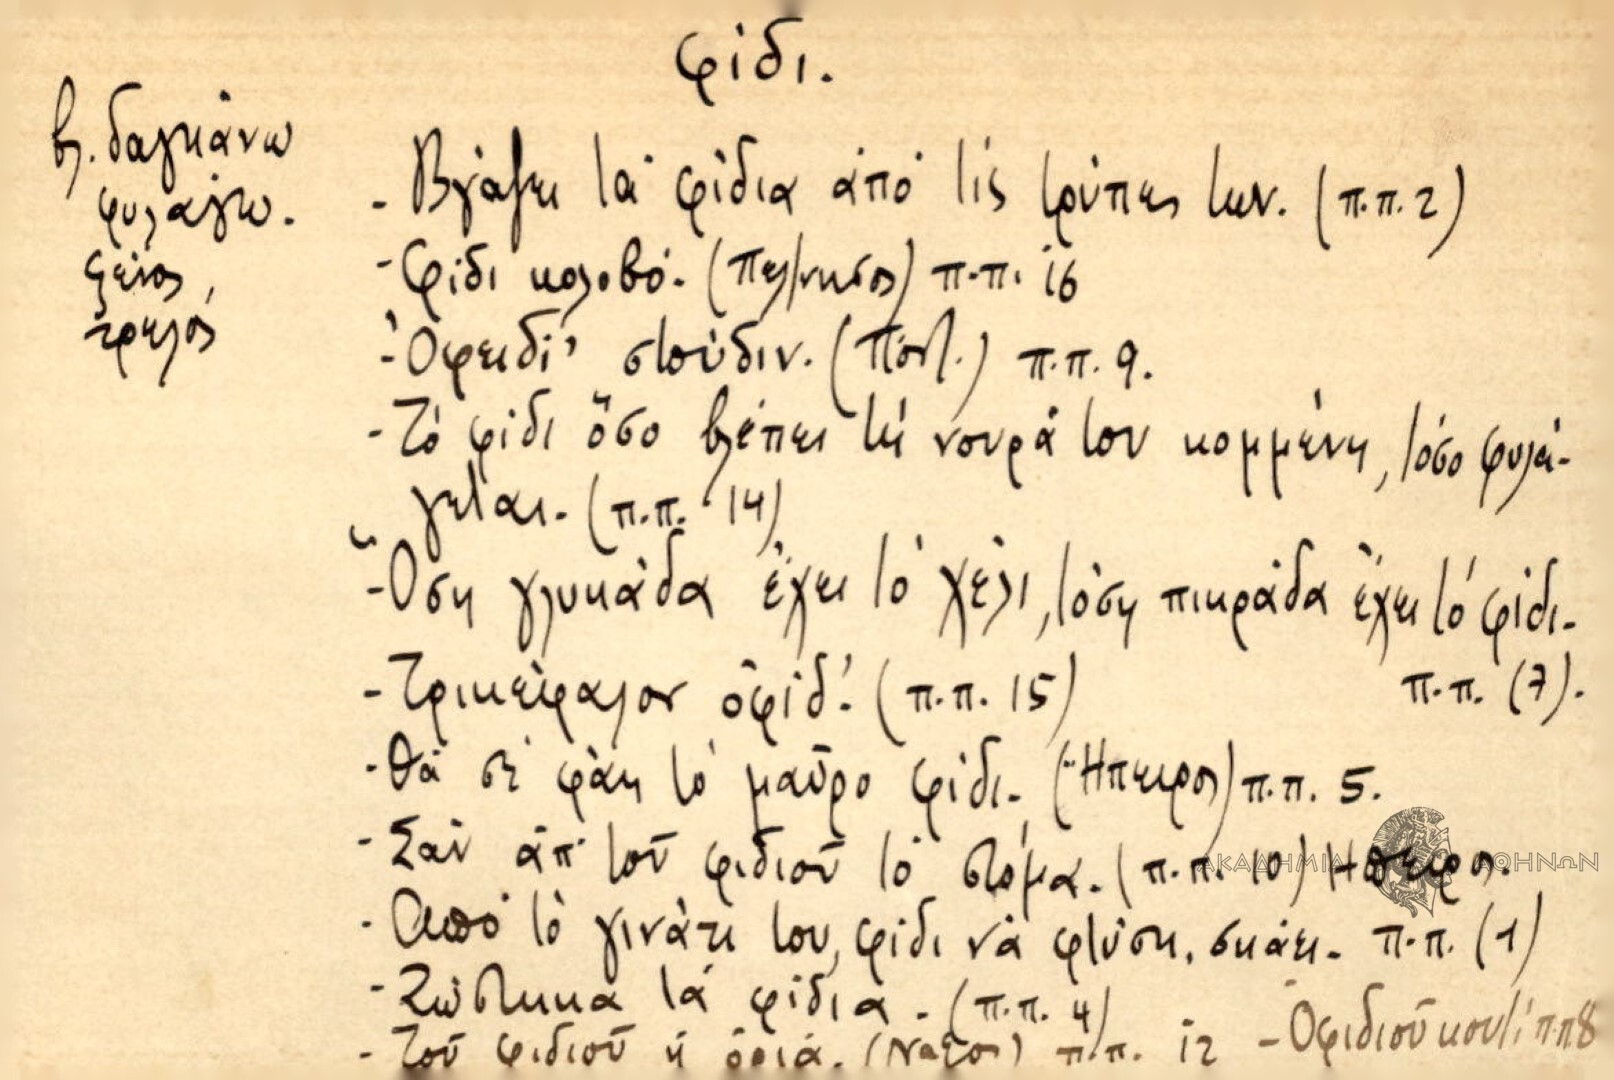 φίδι.
βλ. δαγκάνω
φυλάγω.
ξένος,
τρελός
- Βγάζει τὰ φίδια ἀπό τίς τρύπες των. (π.π. 2)
- Φίδι κολοβό. (Πελ/νησος) π.π. 16
- Ὀφειδί' στούδιν. (Πόντ.) π.π. 9.
- Τό φίδι ὅσο βλέπει τή νουρά του κομμένη, τόσο φυλά-
γεται. (π.π. 14)
- Ὅση γλυκάδα ἔχει τό χέλι, τόση πικράδα ἔχει τό φίδι.
π.π. (7).
- Τρικέφαλον ὀφίδ'. (π.π. 15)
- Θά σέ φάῃ τό μαῦρο φίδι. (Ἤπειρος) π.π. 5.
- Σάν ἀπ' τοῦ φιδιοῦ τό στόμα. (π.π. 10) Ἤπειρος.
- Ἀπό τό γινάτι του, φίδι νά φτύσῃ, σκάει. π.π. (1)
- Ζώστηκα τά φίδια. (π.π. 4)
- Τοῦ φιδιοῦ ἡ ὀριά. (Νάξος) π.π. 12 - Ὀφιδιοῦ κουτί π.π 8
ΑΚΑΔΗΜΙΑ ΑΘΗΝΩΝ